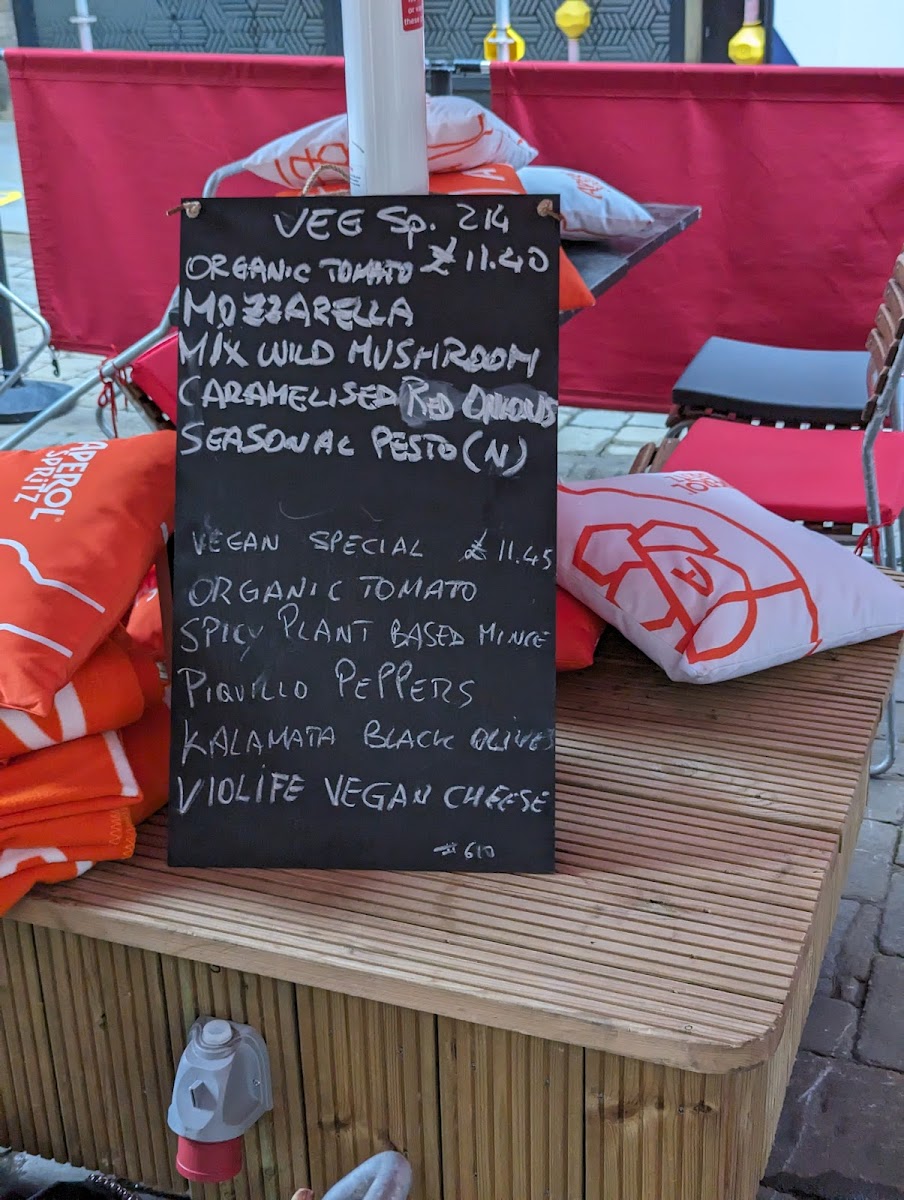 VEG Sp. 214
ORGANIC TOMATO £11.40
MOZZARELLA
MIX WILD MUSHROOM
CARAMELISED RED ONIONS
SEASONAL PESTO (N)
VEGAN SPECIAL £11.45
ORGANIC TOMATO
SPICY PLANT BASED MINCE
PIQUILLO PEPPERS
KALAMATA BLACK OLIVES
VIOLIFE VEGAN CHEESE
#610
APEROL
SPRITZ